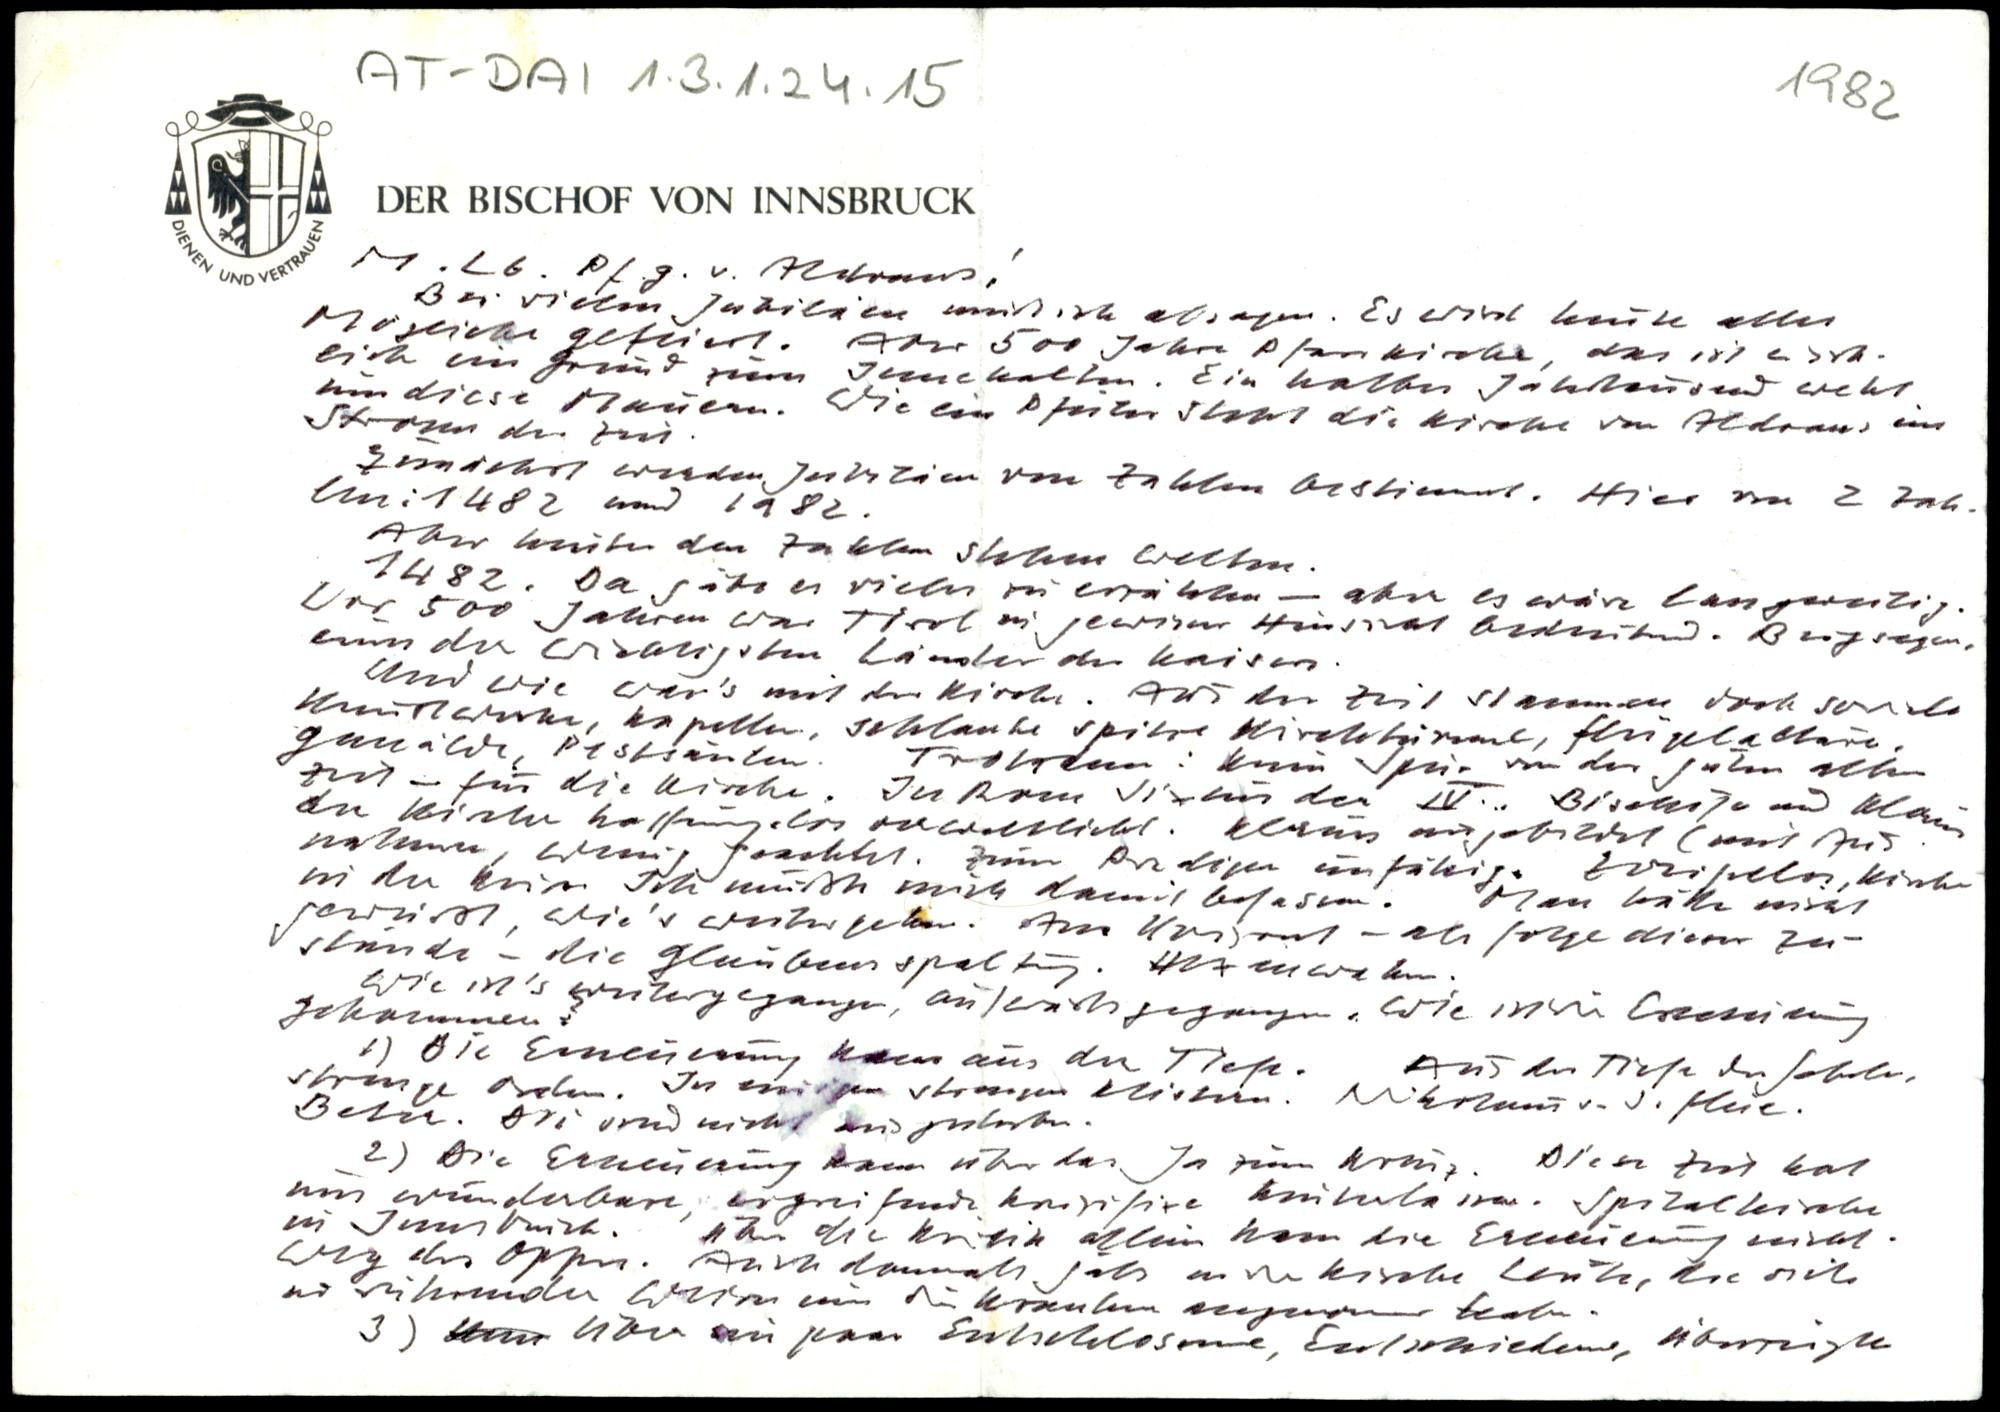 AT-DAI 1.3.1.24.15
1982
DIENEN UND VERTRAUEN
DER BISCHOF VON INNSBRUCK
M. Lb. Pf. g. v. Aldrans!
Bei vielen Jubiläen muß ich absagen. Es wird heute alles
Mögliche gefeiert. Aber 500 Jahre Pfarrkirche, das ist wirk-
lich ein Grund zum Innehalten. Ein halbes Jahrtausend weht
um diese Mauern. Wie ein Pfeiler steht die Kirche von Aldrans im
Strom der Zeit.
Zunächst werden Jubiläen von Zahlen bestimmt. Hier von 2 Zah-
len: 1482 und 1982.
Aber hinter den Zahlen stehen Welten.
1482. Da gäbe es vieles zu erzählen — aber es wäre langweilig.
Vor 500 Jahren war Tirol in gewisser Hinsicht bedeutend. Bergsegen,
eines der wichtigsten Länder des Kaisers.
Und wie war's mit der Kirche. Aus der Zeit stammen doch soviele
Kunstwerke, Kapellen, schlanke spitze Kirchtürme, Flügelaltäre,
Gemälde, Pestsäulen. Trotzdem: Keine Spur von der guten alten
Zeit – für die Kirche. In Rom Sixtus der IV.. Bischöfe und Klerus
der Kirche hoffnungslos verweltlicht. Klerus ungebildet (mit Aus-
nahmen, wenig geachtet. Zum Predigen unfähig. Zweifellos, Kirche
in der Krise. Ich mußte mich damit befassen. Man hätte nicht
gewußt, wie's weitergehen. Am Horizont – als Folge dieser Zu-
stände – die Glaubensspaltung. Hexenwahn.
Wie ist's weitergegangen, aufwärts gegangen. Wie ist die Erneuerung
gekommen?
1) Die Erneuerung kam aus der Tiefe. Aus der Tiefe des Gebetes.
strenge Orden. In einigen strengen Klöstern. Nikolaus v. d. Flüe.
Beter. Die sind nicht ausgestorben.
2) Die Erneuerung kam über das Ja zum Kreuz. Diese Zeit hat
uns wunderbare, ergreifende Kruzifixe hinterlassen. Spitalkirche
in Innsbruck. Über die Kritik allein kam die Erneuerung nicht.
Weg des Opfers. Auch damals gab's in der Kirche Leute, die sich
in rührender Weise um die Kranken angenommen haben.
3) Über ein paar Entschlossene, Entschiedene, Überzeugte